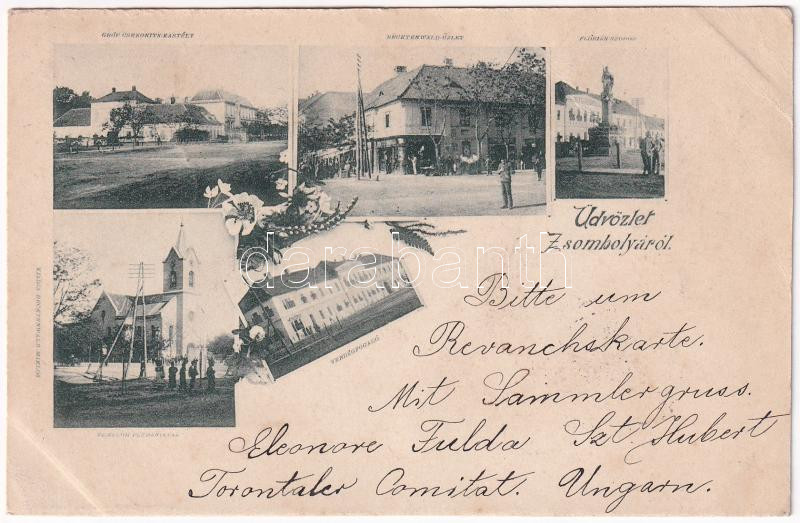 GRÓF CSEKONITS-KASTÉLY
HECKTENWALD-ÜZLET
FLÓRIÁN-SZOBOR
Üdvözlet
Zsombolyáról.
darabanth
VENDÉGFOGADÓ
TEMPLOM
Bitte um
Revanchskarte.
Mit Sammlergruss.
Eleonore Fulda Szt. Hubert
Torontaler Comitat. Ungarn.